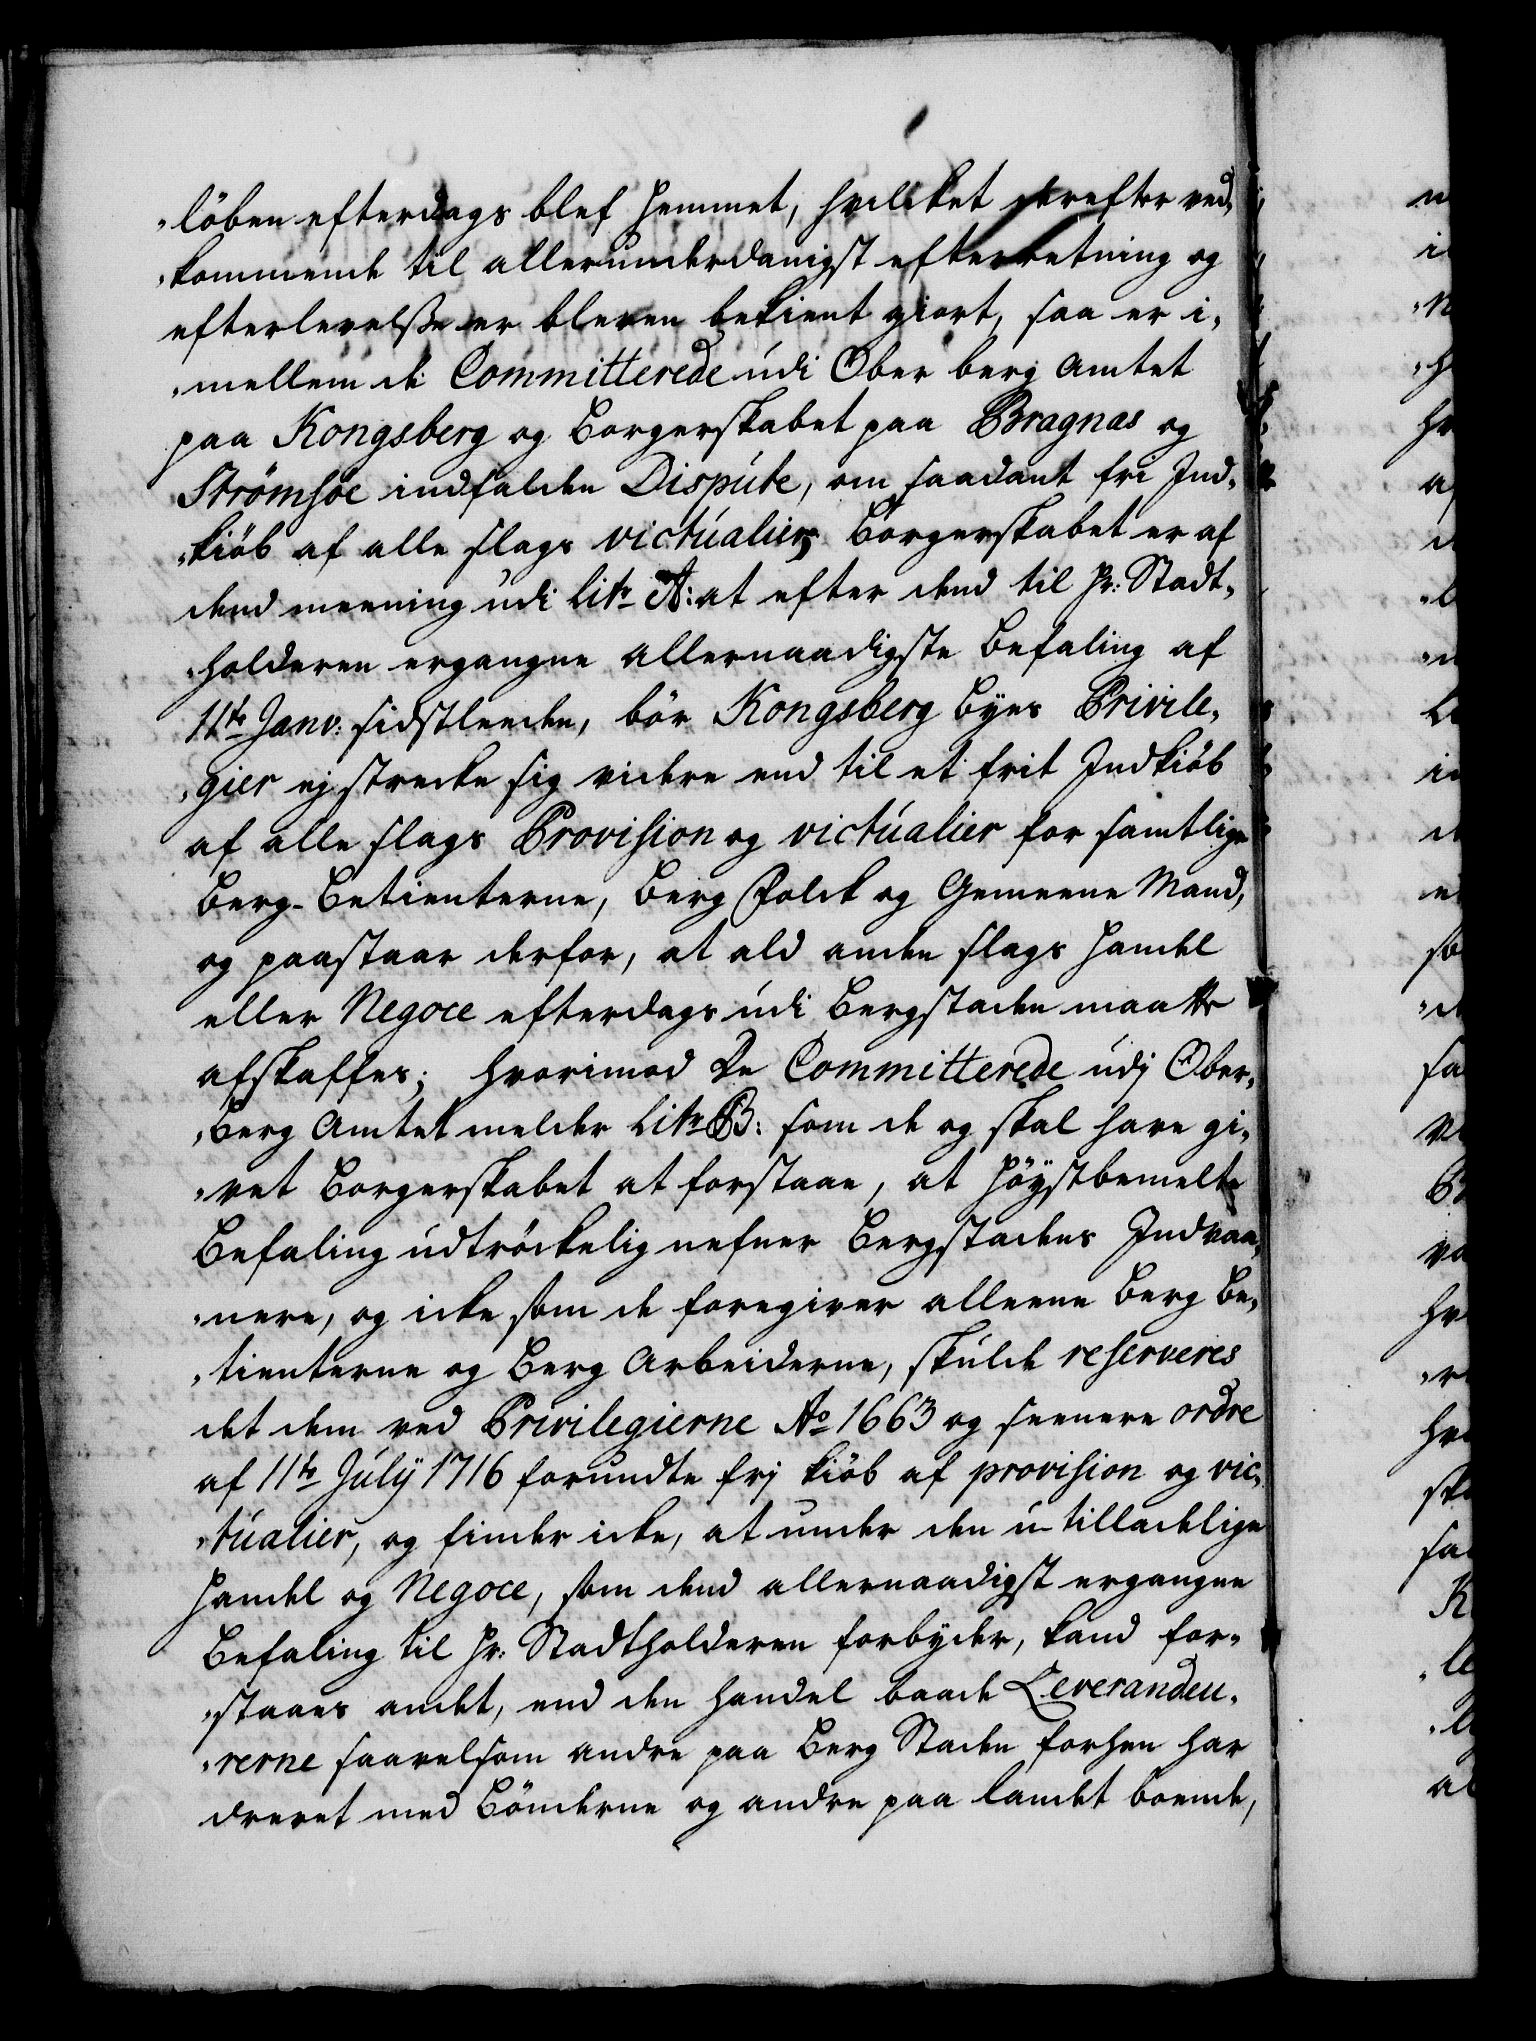 „löben efterdags blef hemmet, hvilcket derefter ved„
„kommende til allerunderdanigst efterretning og
efterlevelße er bleven bekient giort, saa er i„
„mellem de Committerede udi Ober berg Amtet
paa Kongsberg og Borgerskabet paa Bragnas og
Strømsøe indfalden Dispute, om saadant fri Ind„
„kiöb af alle slags victualier, Borgerskabet er af
dend meening udi Litr A: at efter dend til Hr: Stadt„
„holderen ergangne allernaadigste Befaling af
11te Janv: sidstleeden, bör Kongsberg Byes Privile„
„gier ej strecke sig videre end til et frit Indkiöb
af alle slags Provision og victualier for samtlige
Berg-Betienterne, Berg Folck og Gemeene Mand,
og paastaar derfor, at ald anden slags Handel
eller Negoce efterdags udi Bergstaden maatte
afskaffes; hvorimod De Committerede udj Ober„
„Berg Amtet melder Litr B: som de og skal have gi„
„vet Borgerskabet at forstaae, at höystbemelte
Befaling udtröckelig nefner Bergstadens Indvaa„
„nere, og icke som de foregiver alleene Berg Be„
„tienterne og Berg Arbeiderne, skulde reserveres
det dem ved Privilegierne Ao 1663 og seenere ordre
af 11te July 1716 forundte frj kiöb af provision og vic„
„tualier, og finder icke, at under den u-tilladelige
Handel og Negoce, som dend allernaadigst ergangne
Befaling til Hr: Stadtholderen forbyder, kand for„
„staaes andet, end den Handel baade Leverandeu„
„rerne saavelsom andre paa Berg Staden forhen har
drevet med Bönderne og andre paa Landet boende,